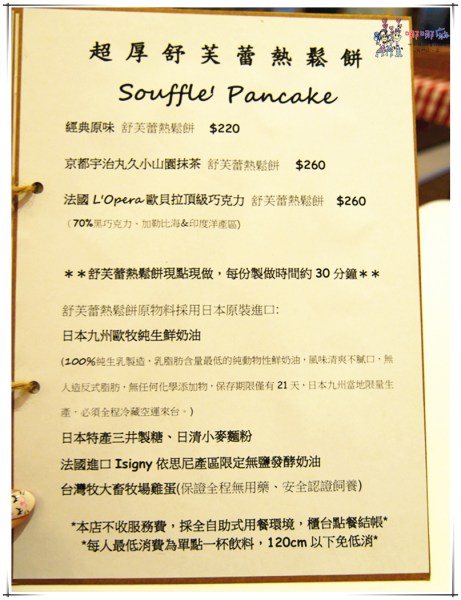 啾啾麻
超厚舒芙蕾熱鬆餅
Souffle' Pancake
經典原味 舒芙蕾熱鬆餅 $220
京都宇治丸久小山園抹茶 舒芙蕾熱鬆餅 $260
法國 L'Opera 歐貝拉頂級巧克力 舒芙蕾熱鬆餅 $260
(70%黑巧克力、加勒比海&印度洋產區)
**舒芙蕾熱鬆餅現點現做，每份製做時間約 30 分鐘**
舒芙蕾熱鬆餅原物料採用日本原裝進口:
日本九州歐牧純生鮮奶油
(100%純生乳製造，乳脂肪含量最低的純動物性鮮奶油，風味清爽不膩口，無
人造反式脂肪，無任何化學添加物，保存期限僅有 21 天，日本九州當地限量生
產，必須全程冷藏空運來台。)
日本特產三井製糖、日清小麥麵粉
法國進口 Isigny 依思尼產區限定無鹽發酵奶油
台灣牧大畜牧場雞蛋(保證全程無用藥、安全認證飼養)
*本店不收服務費，採全自助式用餐環境，櫃台點餐結帳*
*每人最低消費為單點一杯飲料，120cm 以下免低消*